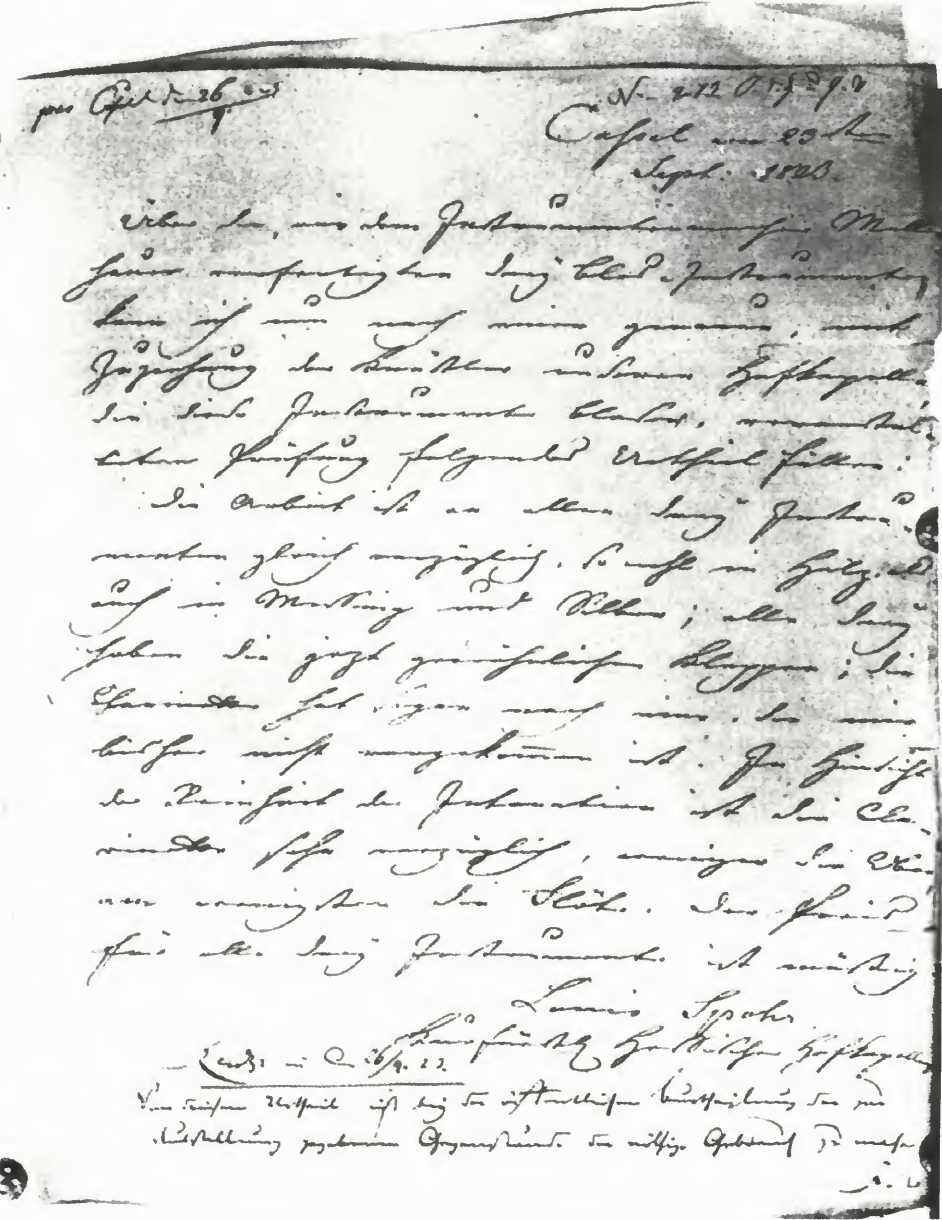 Cassel den 26
Cassel am 23sten
Sept. 1823.
Über die, von dem Instrumentenmacher Mollen
hauer verfertigten drey Blas-Instrumente,
kann ich nun nach einer genauen, mit
Zuziehung der Künstler unserer Hofkapelle,
die diese Instrumente blasen, veranstal-
teten Prüfung folgendes Urtheil fällen:
Die Arbeit ist an allen drey Instru-
menten gleich vorzüglich, sowohl in Holz, als
auch in Messing und Silber; alle drey
haben die jezt gewöhnlichen Klappen; die
Clarinette hat sogar noch eine, die mir
bisher nicht vorgekommen ist. In Hinsicht
der Reinheit der Intonation ist die Cla-
rinette sehr vorzüglich, weniger die Oboe
am wenigsten die Flöte. Der Preis
für alle drey Instrumente ist mäßig
Louis Spohr
Kurfürstl. Hessischer Hofkapellm
26/9. 23.
Von diesem Urtheil ist bey der öffentlichen Beurtheilung der zur
Ausstellung gegebenen Gegenstände der nöthige Gebrauch zu machen